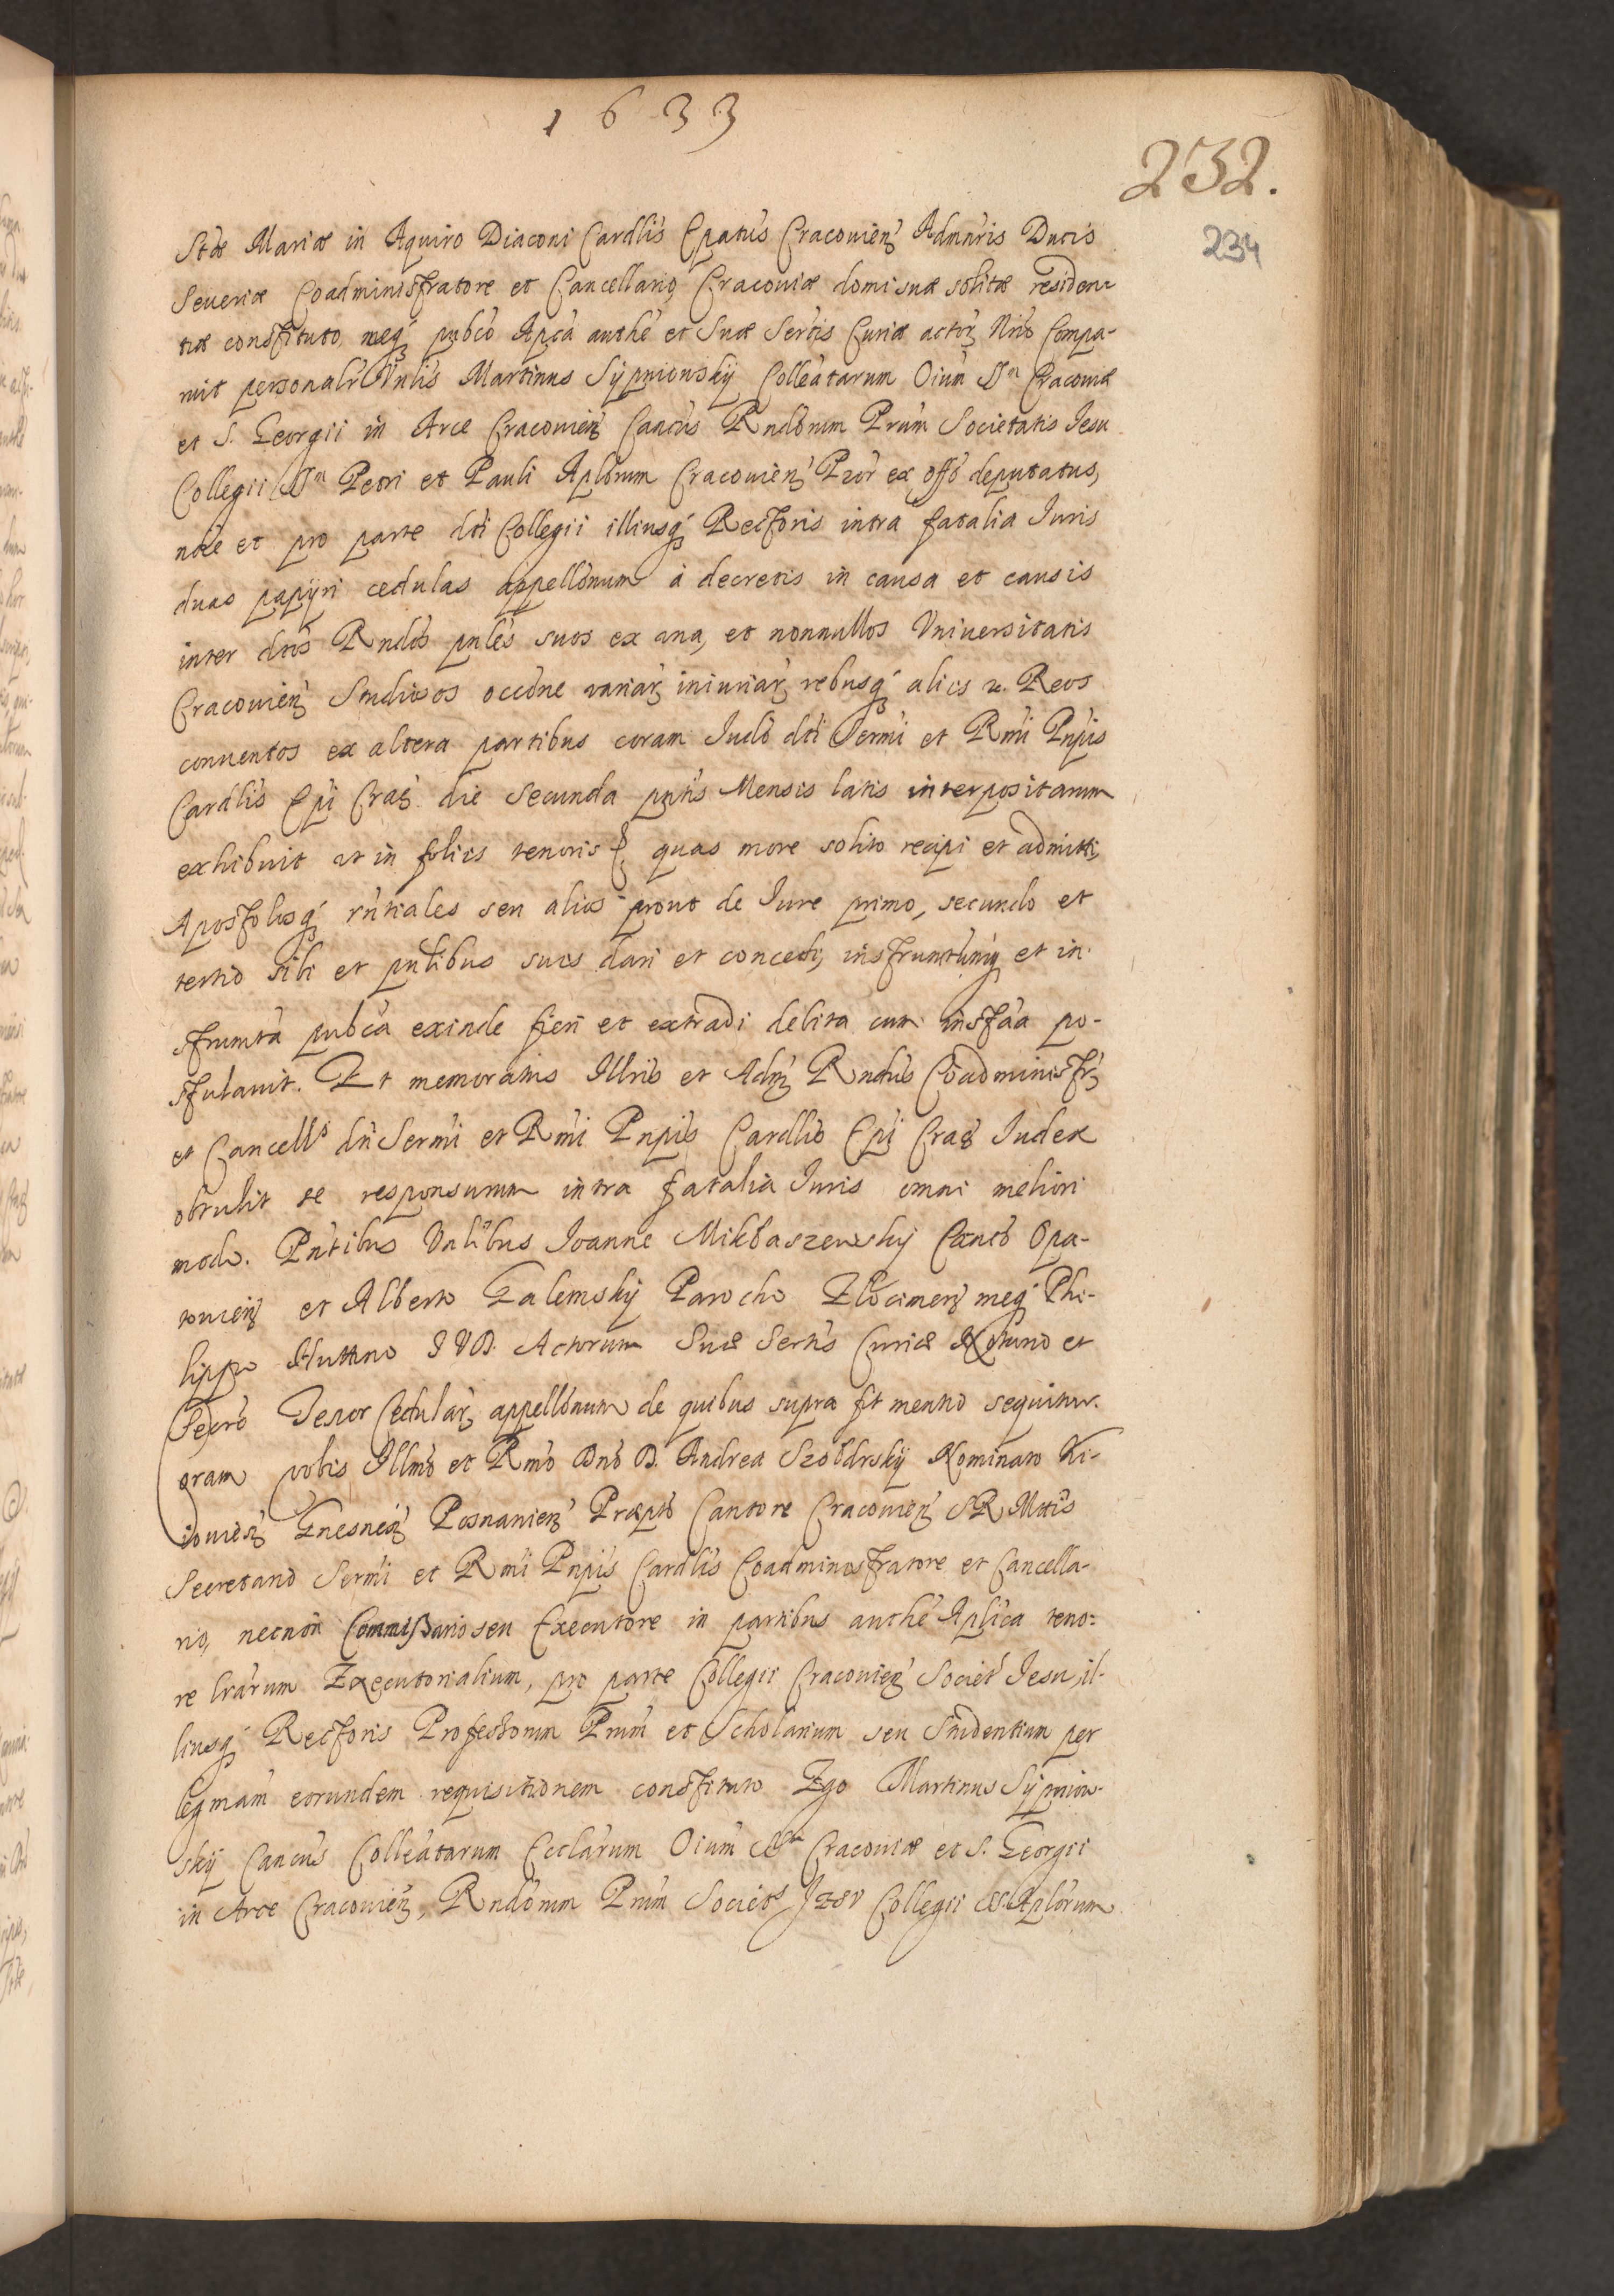 1633
232.
234
Stæ Mariæ in Aquiro Diaconi Cardlis Epatus Cracovien Admnris Ducis
Severiæ Coadministratore et Cancellario, Cracoviæ domi suæ solitæ residen
tiæ constituto, meq publco Aplca authe et Suæ Sertis Curiæ actor Nrio Compa-
ruit personalr Vnlis Martinus Sypniowskij Colleatarum Oium SSm Cracoviæ
et S. Georgii in Arce Cracovien Cancus Rndorum Prum Societatis Jesu
Collegii SSm Petri et Pauli Aplorum Cracovien Pror ex offo deputatus,
noie et pro parte dti Collegii illiusq Rectoris intra fatalia Iuris
duas papijri cedulas appellonum à decretis in causa et causis
inter dtos Rndos pnles suos ex una, et nonnullos Vniversitatis
Cracovien Studiosos occone variar iniuriar rebusq aliis u. Reos
conventos ex altera partibus coram Iudo dti Sermi et Rmi Pnpis
Cardlis Epi Crac die secunda pntis Mensis latis interpositarum
exhibuit ut in foliis tenoris quas more solito recipi et admitti,
Apostolosq rntiales seu alios prout de Iure primo, secundo et
tertio sibi et pnlibus suis dari et concedi, instrumtumq et in
strumta pubca exinde fieri et extradi debita cum instaa po-
stulavit. Et memoratus Illris et Adm Rndus Coadministr
et Cancells dti Sermi et Rmi Pnpis Cardlis Epi Crac Iudex
obtulit se responsurum intra fatalia Iuris omni meliori
modo. Pntibus Vnlibus Joanne Miklaszewskij Canco Opa-
tovien et Alberto Galemskij Parocho Zlocimen meq Phi-
lippo Huttino I V D. Actorum Suæ Sertis Curiæ Notario et
Tenor Cedular appellonum de quibus supra fit mentio sequitur.
Coram vobis Illmo et Rmo Dno D. Andrea Szoldrskij Nominato Ki-
iovien Gnesnen Posnanien Præpto Cantore Cracovien S R Mtis
Secretario Sermi et Rmi Pnpis Cardlis Coadministratore et Cancella-
rio, necnon Commissario seu Executore in partibus authe Aplica teno:
re lrarum Executorialium, pro parte Collegii Cracovien Societ Jesu, il-
liusq Rectoris Professorum Prum et Scholarium seu Studentium per
legmam eorundem requisitionem constituto Ego Martinus Sijpniow-
skij Cancus Colleatarum Ecclarum Oium SSm Cracoviæ et S. Georgii
in Arce Cracovien, Rndorum Prum Societs Jesv Collegii SS. Aplorum